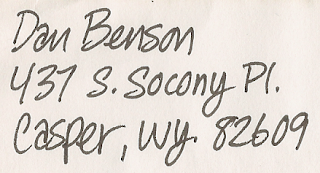 Dan Benson
437 S. Socony Pl.
Casper, Wy. 82609